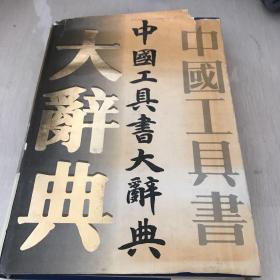 中國工具書
中國工具書大辭典
大辭典